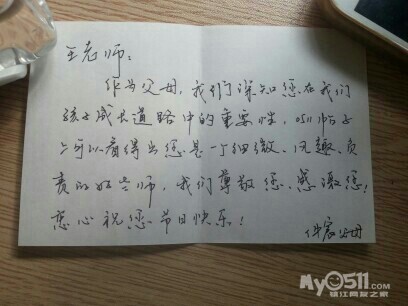 王老师：
作为父母，我们深知您在我们
孩子成长道路中的重要性，
可以看得出您是一个细微、风趣、负
责的好老师，我们尊敬您、感激您！
衷心祝您节日快乐！
父母
My0511.com
镇江网友之家